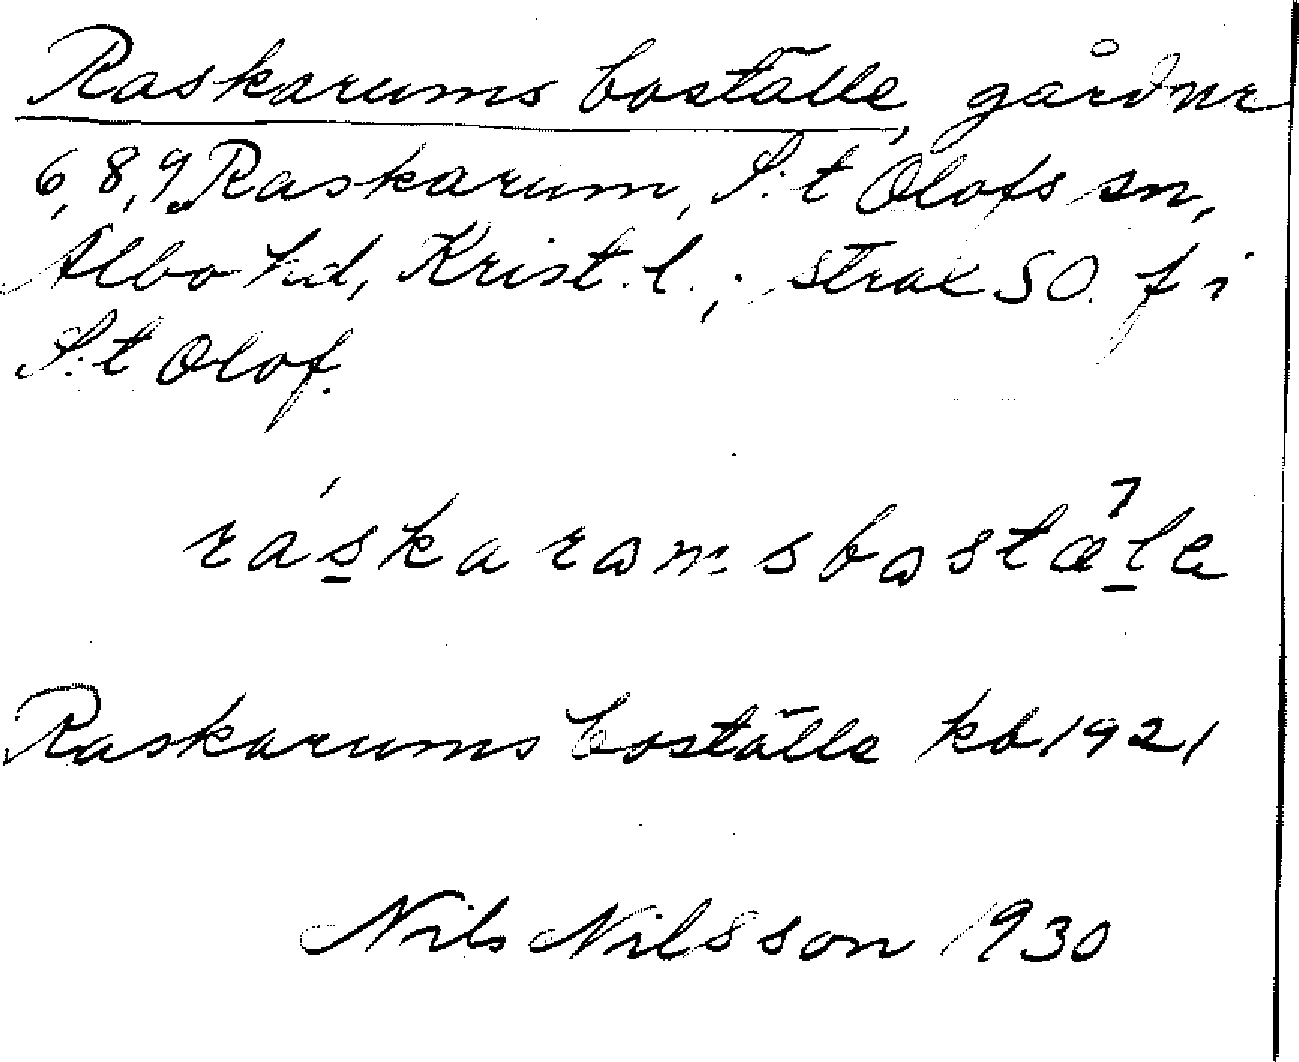 Raskarums boställe, gård nr
6, 8, 9, Raskarum, S:t Olofs sn,
Albo hd, Krist. l.; strax SO. f i
S:t Olof.
ráskaramsbostæle
Raskarums boställe kb 1921
Nils Nilsson 1930